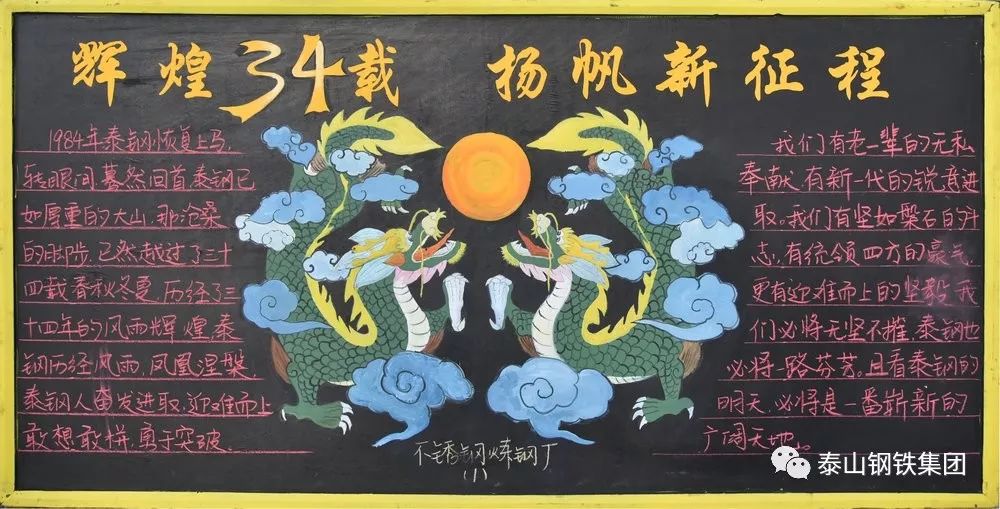 辉煌34载 扬帆新征程
1984年泰钢恢复上马,
转眼间蓦然回首,泰钢已
如厚重的大山,那沧桑
的脚步,已然越过了三十
四载春秋冬夏,历经了三
十四年的风雨辉煌,泰
钢历经风雨,凤凰涅槃
泰钢人奋发进取,迎难而上
敢想敢拼,勇于突破。
我们有老一辈的无私
奉献,有新一代的锐意进
取。我们有坚如磐石的斗
志,有统领四方的豪气,
更有迎难而上的坚毅,我
们必将无坚不摧,泰钢也
必将一路芬芳。且看泰钢的
明天,必将是一番崭新的
广阔天地。
不锈钢炼钢厂
(1)
泰山钢铁集团